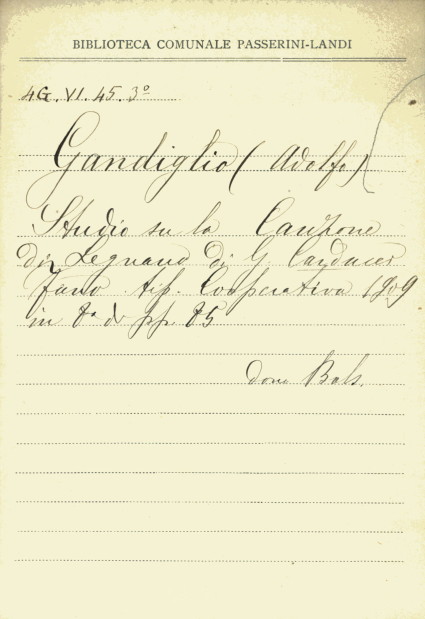 BIBLIOTECA COMUNALE PASSERINI-LANDI
4G. VI. 45. 3º
Gandiglio (Adolfo)
Studio su la Canzone
di Legnano di G. Carducci
Fano tip. Cooperativa 1909
in 8º di pp. 85
dono Bals.